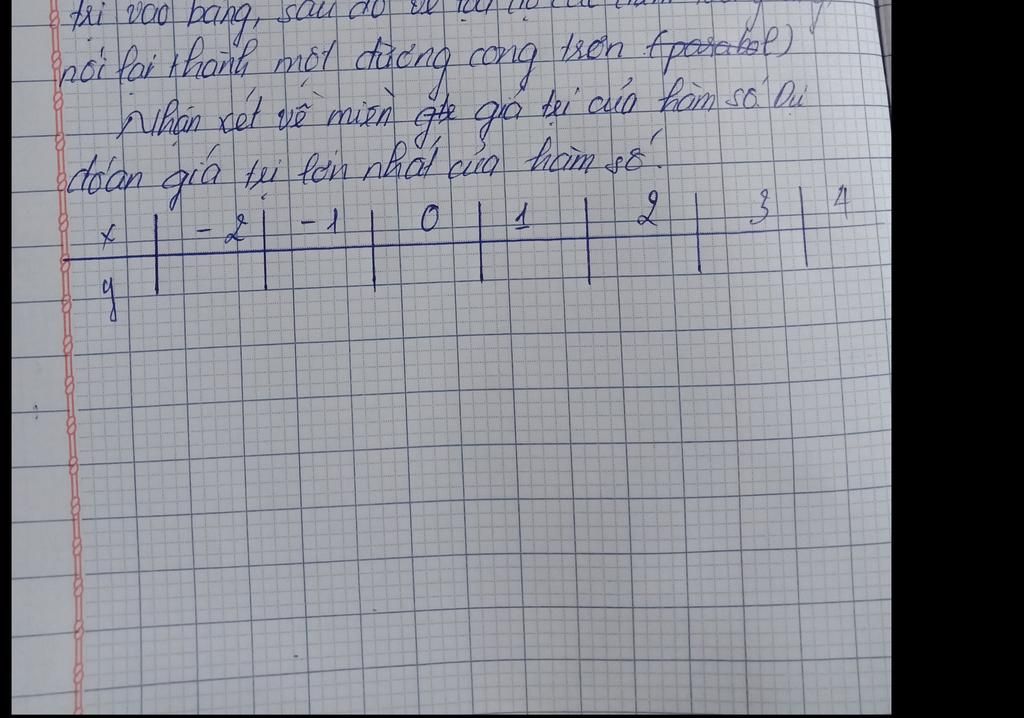 trị vào bảng, sau đó vẽ
nối lại thành một đường cong trơn (parabol)
Nhận xét về miền giá trị của hàm số. Dự
đoán giá trị lớn nhất của hàm số.
x -2 -1 0 1 2 3 4
y